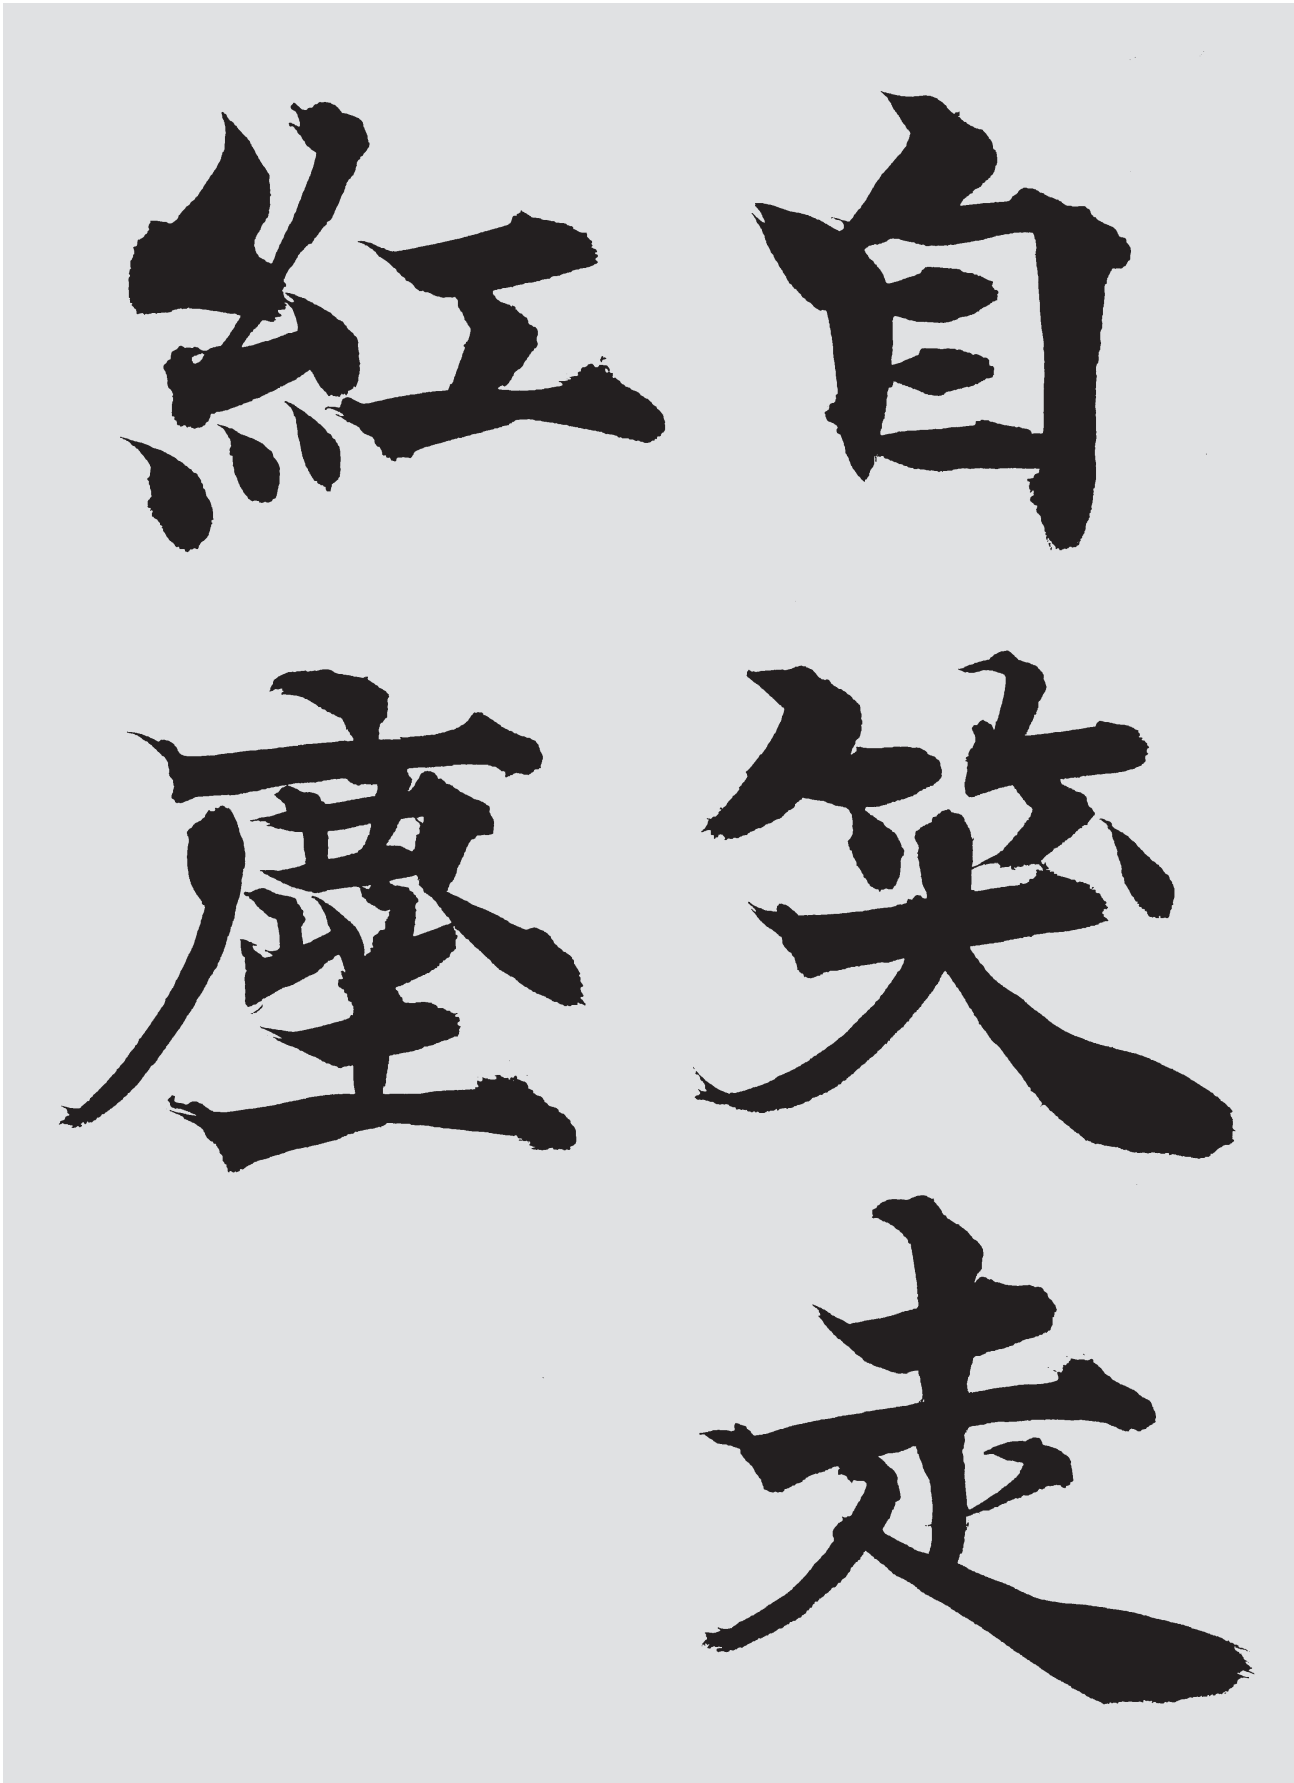 自笑走
紅塵